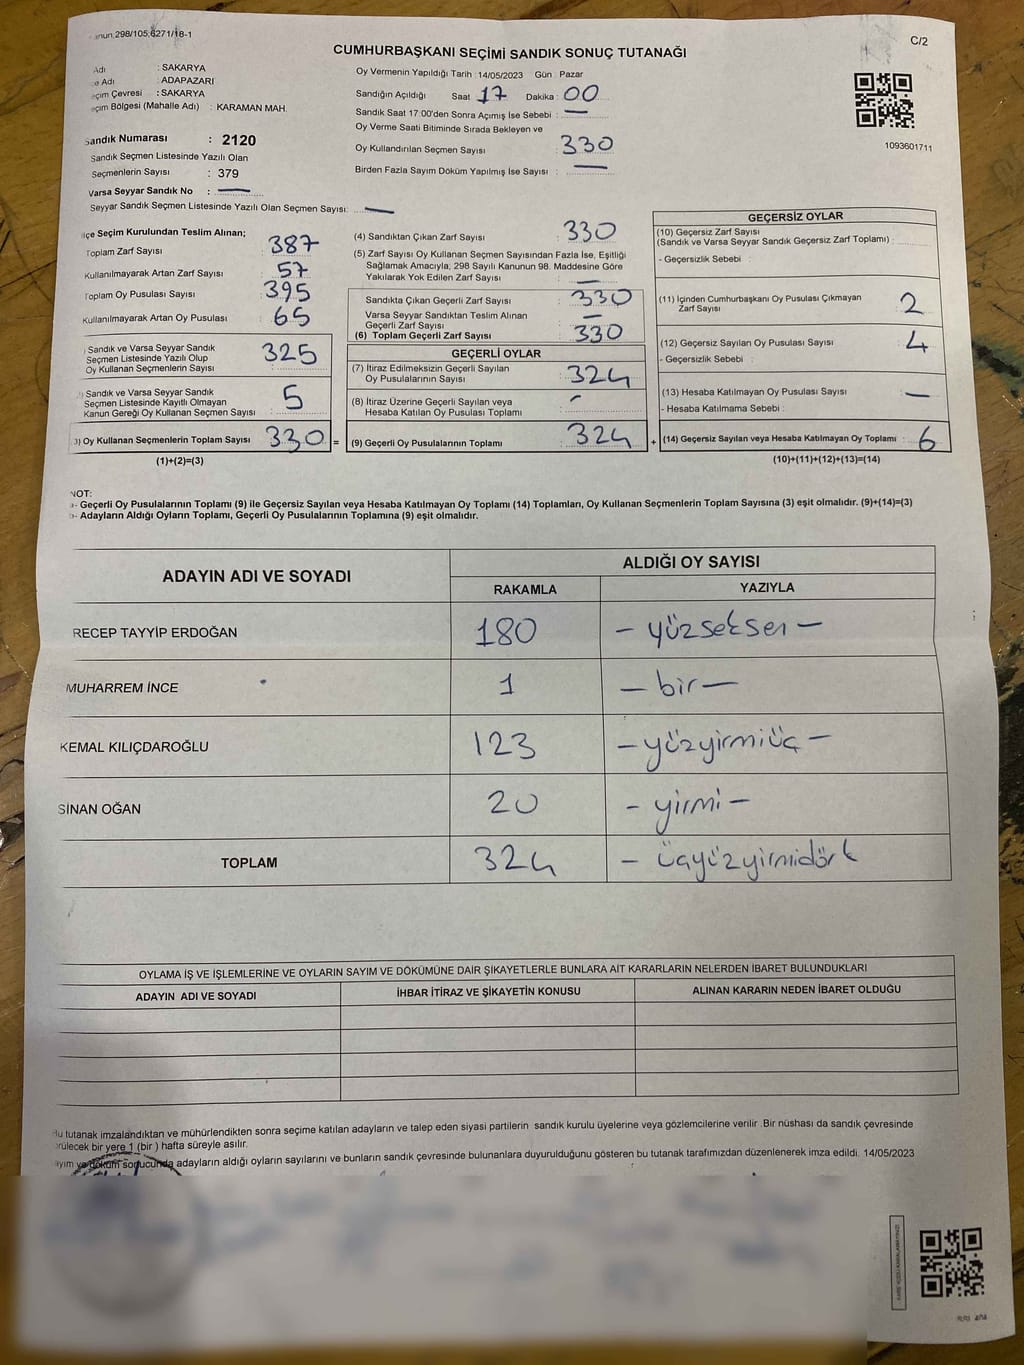 298/105;6271/18-1
C/2
CUMHURBAŞKANI SEÇİMİ SANDIK SONUÇ TUTANAĞI
Adı : SAKARYA
Adı : ADAPAZARI
Çevresi : SAKARYA
Bölgesi (Mahalle Adı) : KARAMAN MAH.
Sandık Numarası : 2120
Sandık Seçmen Listesinde Yazılı Olan
Seçmenlerin Sayısı : 379
Varsa Seyyar Sandık No : —
Seyyar Sandık Seçmen Listesinde Yazılı Olan Seçmen Sayısı: —
Oy Vermenin Yapıldığı Tarih : 14/05/2023 Gün : Pazar
Sandığın Açıldığı Saat 17 Dakika : 00
Sandık Saat 17:00'den Sonra Açımış İse Sebebi : —
Oy Verme Saati Bitiminde Sırada Bekleyen ve
Oy Kullandırılan Seçmen Sayısı : 330
Birden Fazla Sayım Döküm Yapılmış İse Sayısı : —
1093601711
İlçe Seçim Kurulundan Teslim Alınan;
Toplam Zarf Sayısı : 387
Kullanılmayarak Artan Zarf Sayısı : 57
Toplam Oy Pusulası Sayısı : 395
Kullanılmayarak Artan Oy Pusulası : 65
Sandık ve Varsa Seyyar Sandık
Seçmen Listesinde Yazılı Olup
Oy Kullanan Seçmenlerin Sayısı : 325
Sandık ve Varsa Seyyar Sandık
Seçmen Listesinde Kayıtlı Olmayan
Kanun Gereği Oy Kullanan Seçmen Sayısı : 5
3) Oy Kullanan Seçmenlerin Toplam Sayısı : 330 =
(1)+(2)=(3)
(4) Sandıktan Çıkan Zarf Sayısı : 330
(5) Zarf Sayısı Oy Kullanan Seçmen Sayısından Fazla İse, Eşitliği
Sağlamak Amacıyla, 298 Sayılı Kanunun 98. Maddesine Göre
Yakılarak Yok Edilen Zarf Sayısı : —
Sandıkta Çıkan Geçerli Zarf Sayısı : 330
Varsa Seyyar Sandıktan Teslim Alınan
Geçerli Zarf Sayısı : —
(6) Toplam Geçerli Zarf Sayısı : 330
GEÇERLİ OYLAR
(7) İtiraz Edilmeksizin Geçerli Sayılan
Oy Pusulalarının Sayısı : 324
(8) İtiraz Üzerine Geçerli Sayılan veya
Hesaba Katılan Oy Pusulası Toplamı : -
(9) Geçerli Oy Pusulalarının Toplamı : 324 +
GEÇERSİZ OYLAR
(10) Geçersiz Zarf Sayısı
(Sandık ve Varsa Seyyar Sandık Geçersiz Zarf Toplamı) :
- Geçersizlik Sebebi :
(11) İçinden Cumhurbaşkanı Oy Pusulası Çıkmayan
Zarf Sayısı : 2
(12) Geçersiz Sayılan Oy Pusulası Sayısı : 4
- Geçersizlik Sebebi :
(13) Hesaba Katılmayan Oy Pusulası Sayısı : —
- Hesaba Katılmama Sebebi :
(14) Geçersiz Sayılan veya Hesaba Katılmayan Oy Toplamı : 6
(10)+(11)+(12)+(13)=(14)
NOT:
a- Geçerli Oy Pusulalarının Toplamı (9) ile Geçersiz Sayılan veya Hesaba Katılmayan Oy Toplamı (14) Toplamları, Oy Kullanan Seçmenlerin Toplam Sayısına (3) eşit olmalıdır. (9)+(14)=(3)
b- Adayların Aldığı Oyların Toplamı, Geçerli Oy Pusulalarının Toplamına (9) eşit olmalıdır.
ADAYIN ADI VE SOYADI ALDIĞI OY SAYISI
RAKAMLA YAZIYLA
RECEP TAYYİP ERDOĞAN 180 - yüzseksen -
MUHARREM İNCE 1 - bir -
KEMAL KILIÇDAROĞLU 123 - yüzyirmiüç -
SİNAN OĞAN 20 - yirmi -
TOPLAM 324 - üçyüzyirmidört
OYLAMA İŞ VE İŞLEMLERİNE VE OYLARIN SAYIM VE DÖKÜMÜNE DAİR ŞİKAYETLERLE BUNLARA AİT KARARLARIN NELERDEN İBARET BULUNDUKLARI
ADAYIN ADI VE SOYADI İHBAR İTİRAZ VE ŞİKAYETİN KONUSU ALINAN KARARIN NEDEN İBARET OLDUĞU
Bu tutanak imzalandıktan ve mühürlendikten sonra seçime katılan adayların ve talep eden siyasi partilerin sandık kurulu üyelerine veya gözlemcilerine verilir .Bir nüshası da sandık çevresinde
görülecek bir yere 1 (bir ) hafta süreyle asılır.
Sayım ve döküm sonucunda adayların aldığı oyların sayılarını ve bunların sandık çevresinde bulunanlara duyurulduğunu gösteren bu tutanak tarafımızdan düzenlenerek imza edildi. 14/05/2023